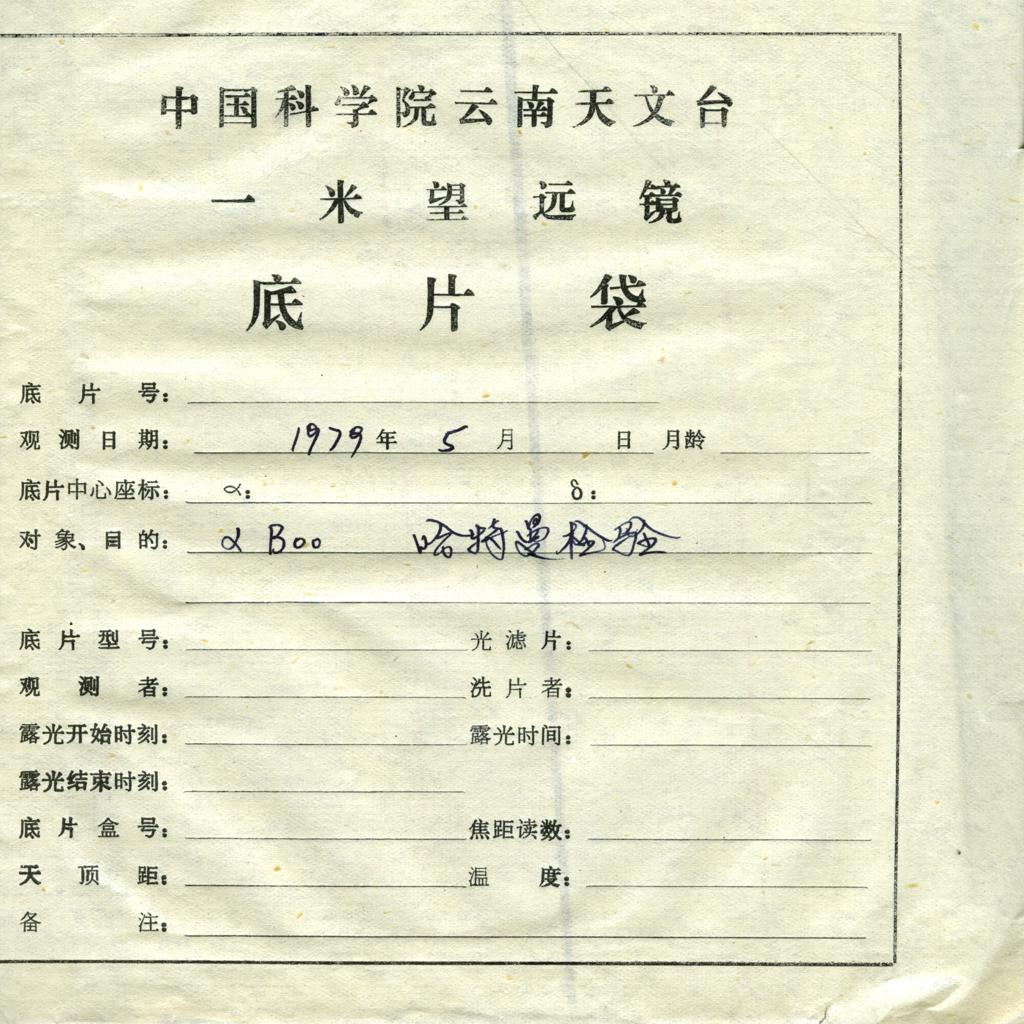 中国科学院云南天文台
一米望远镜
底片袋
底片号：
观测日期： 1979年 5 月 日 月龄
底片中心座标： α： δ：
对象、目的： α Boo 哈特曼检验
底片型号： 光滤片：
观测者： 洗片者：
露光开始时刻： 露光时间：
露光结束时刻：
底片盒号： 焦距读数：
天顶距： 温度：
备注：